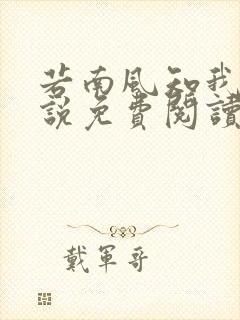 若南風知我
說免費閱讀
戴軍哥